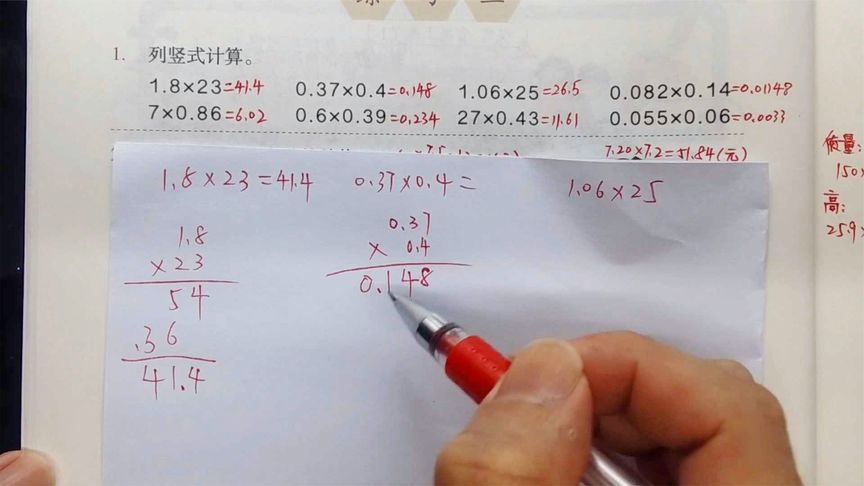 1. 列竖式计算。
1.8×23=41.4 0.37×0.4=0.148 1.06×25=26.5 0.082×0.14=0.01148
7×0.86=6.02 0.6×0.39=0.234 27×0.43=11.61 0.055×0.06=0.0033
7.20×7.2=51.84(元)
质量:
150
高:
25.9
1.8×23=41.4 0.37×0.4= 1.06×25
1.8
×23
54
.36
41.4
0.37
× 0.4
0.148